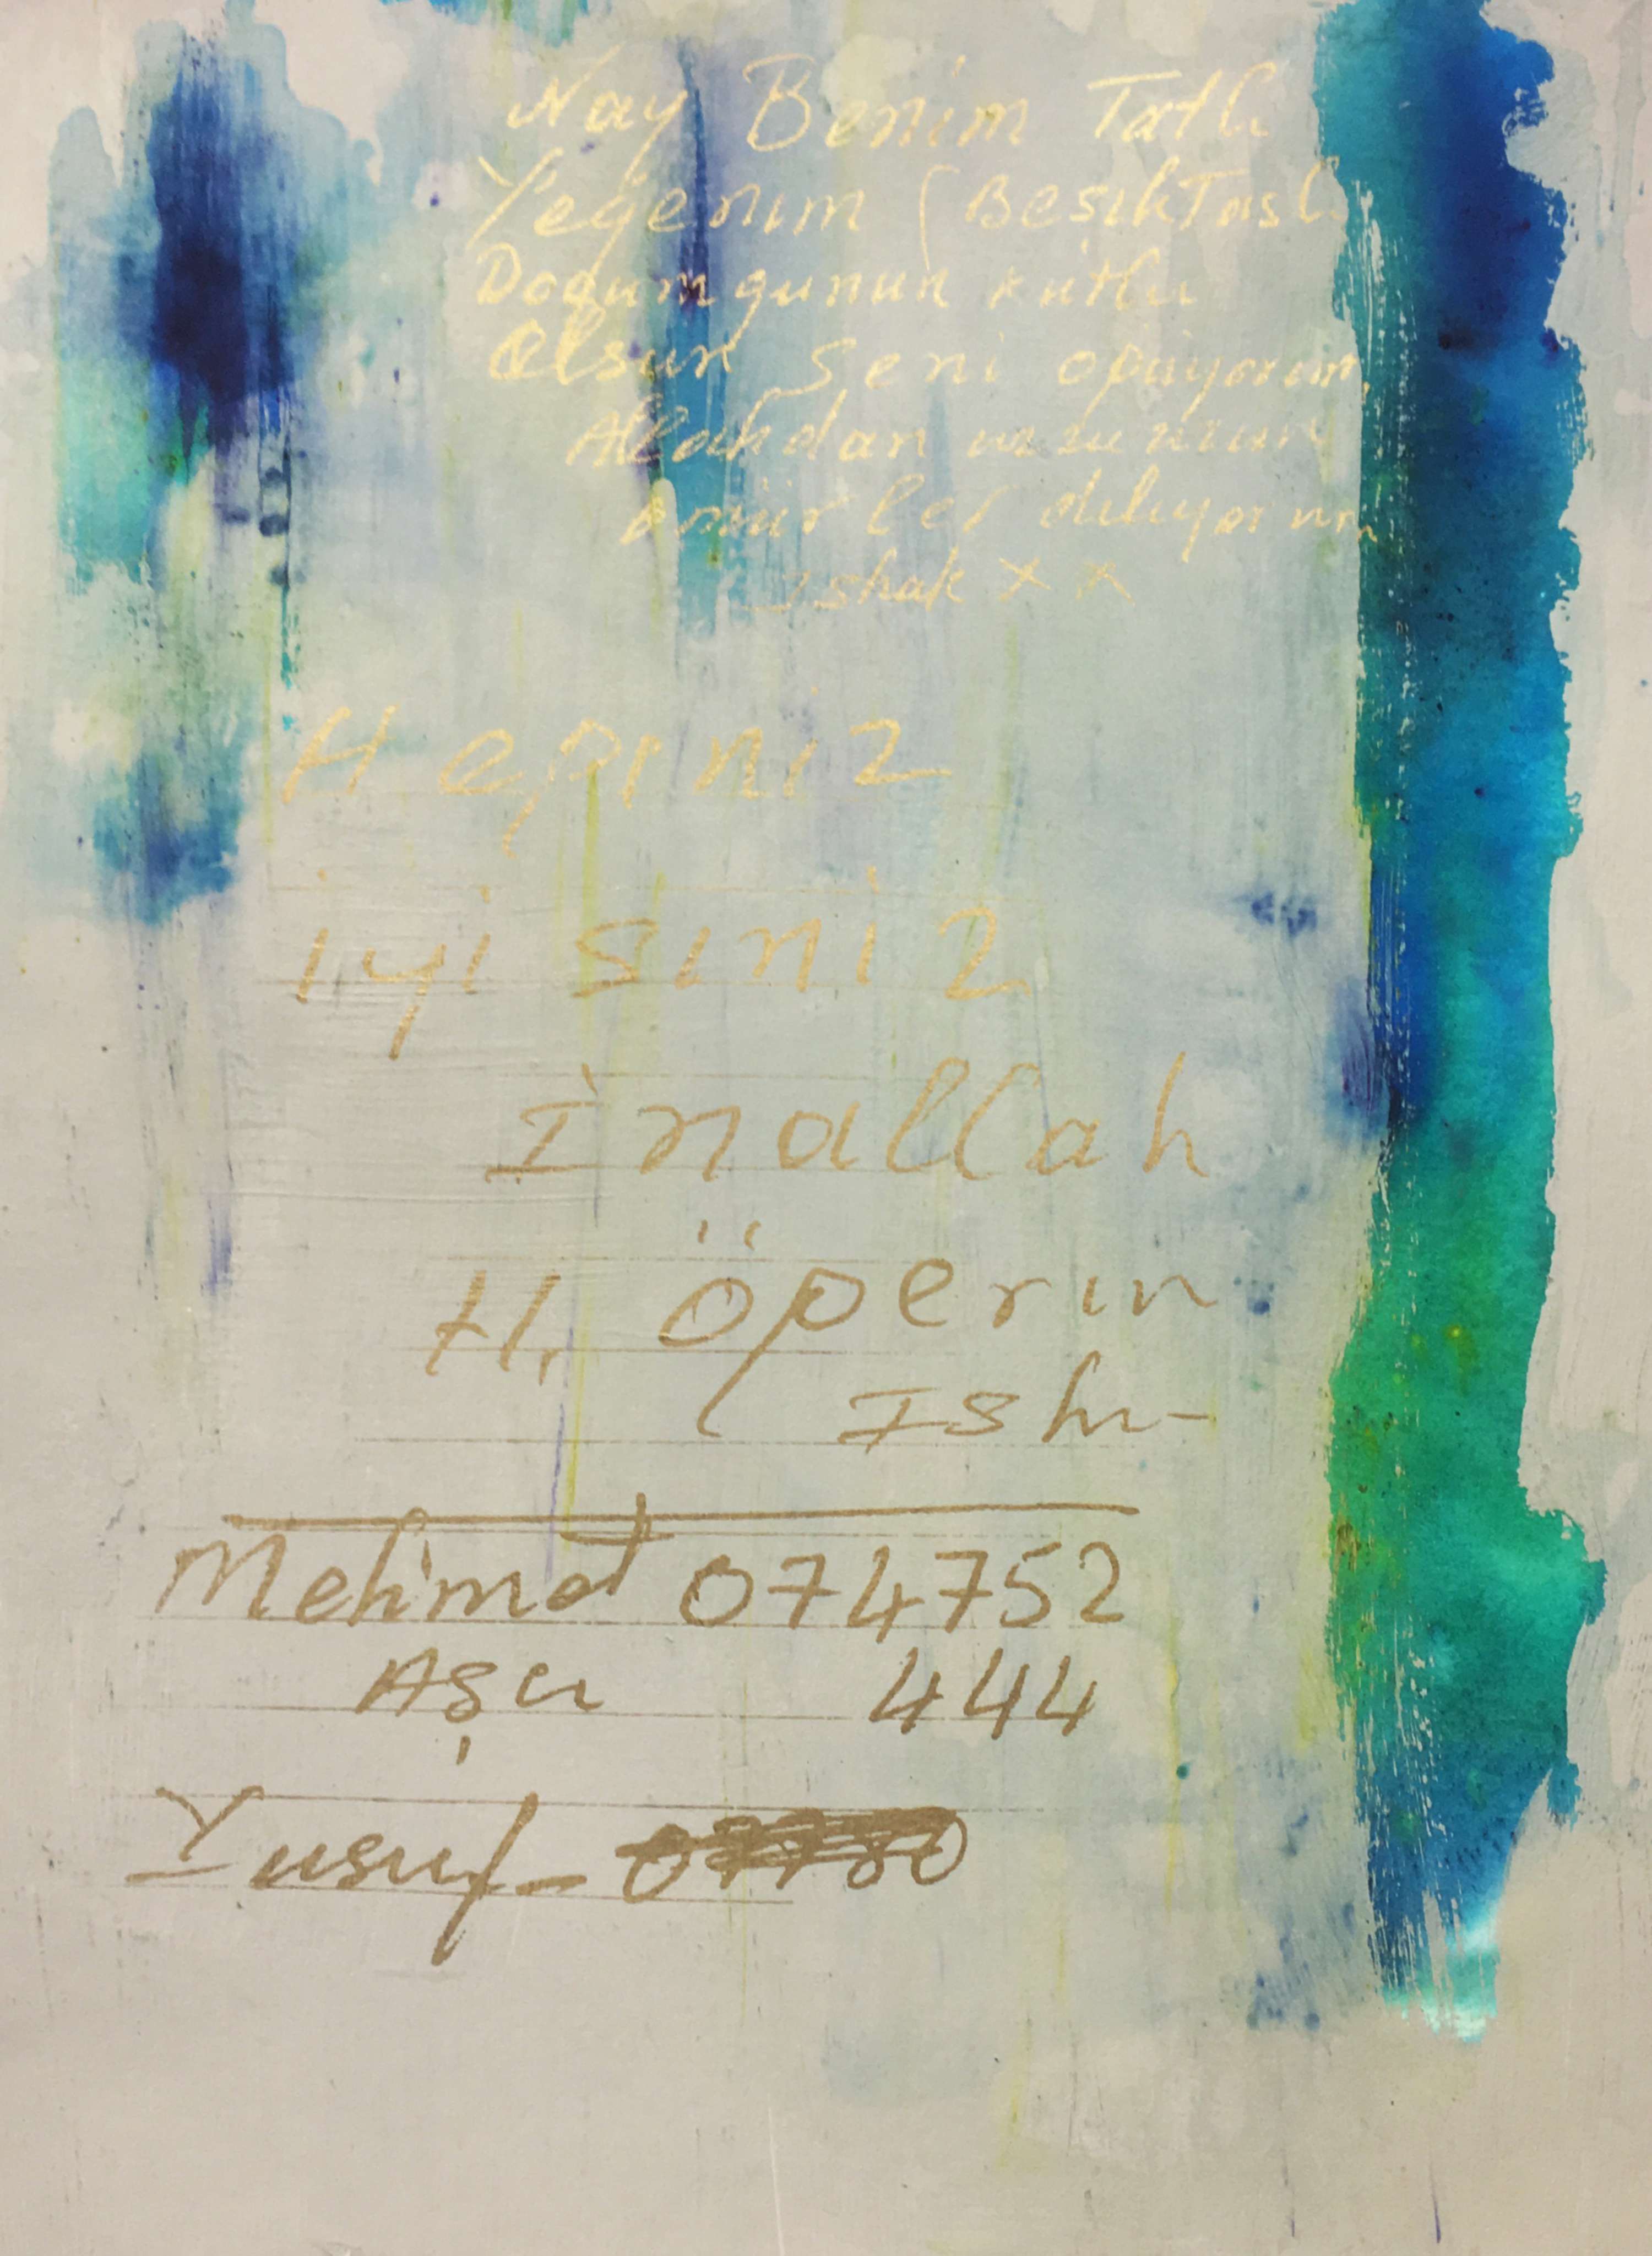 Nay Benim Tatlı
Yegenım (Beşıktaslı
Dogumgunun kutlu
Olsun Seni opüyorum,
Allahdan uzunuzun
ömürler dılıyorum
Ishak x x
Hepıniz
iyi sıniz
İnallah
H, öperın
Ish
Mehmet 074752
Aşcı 444
Yusuf -